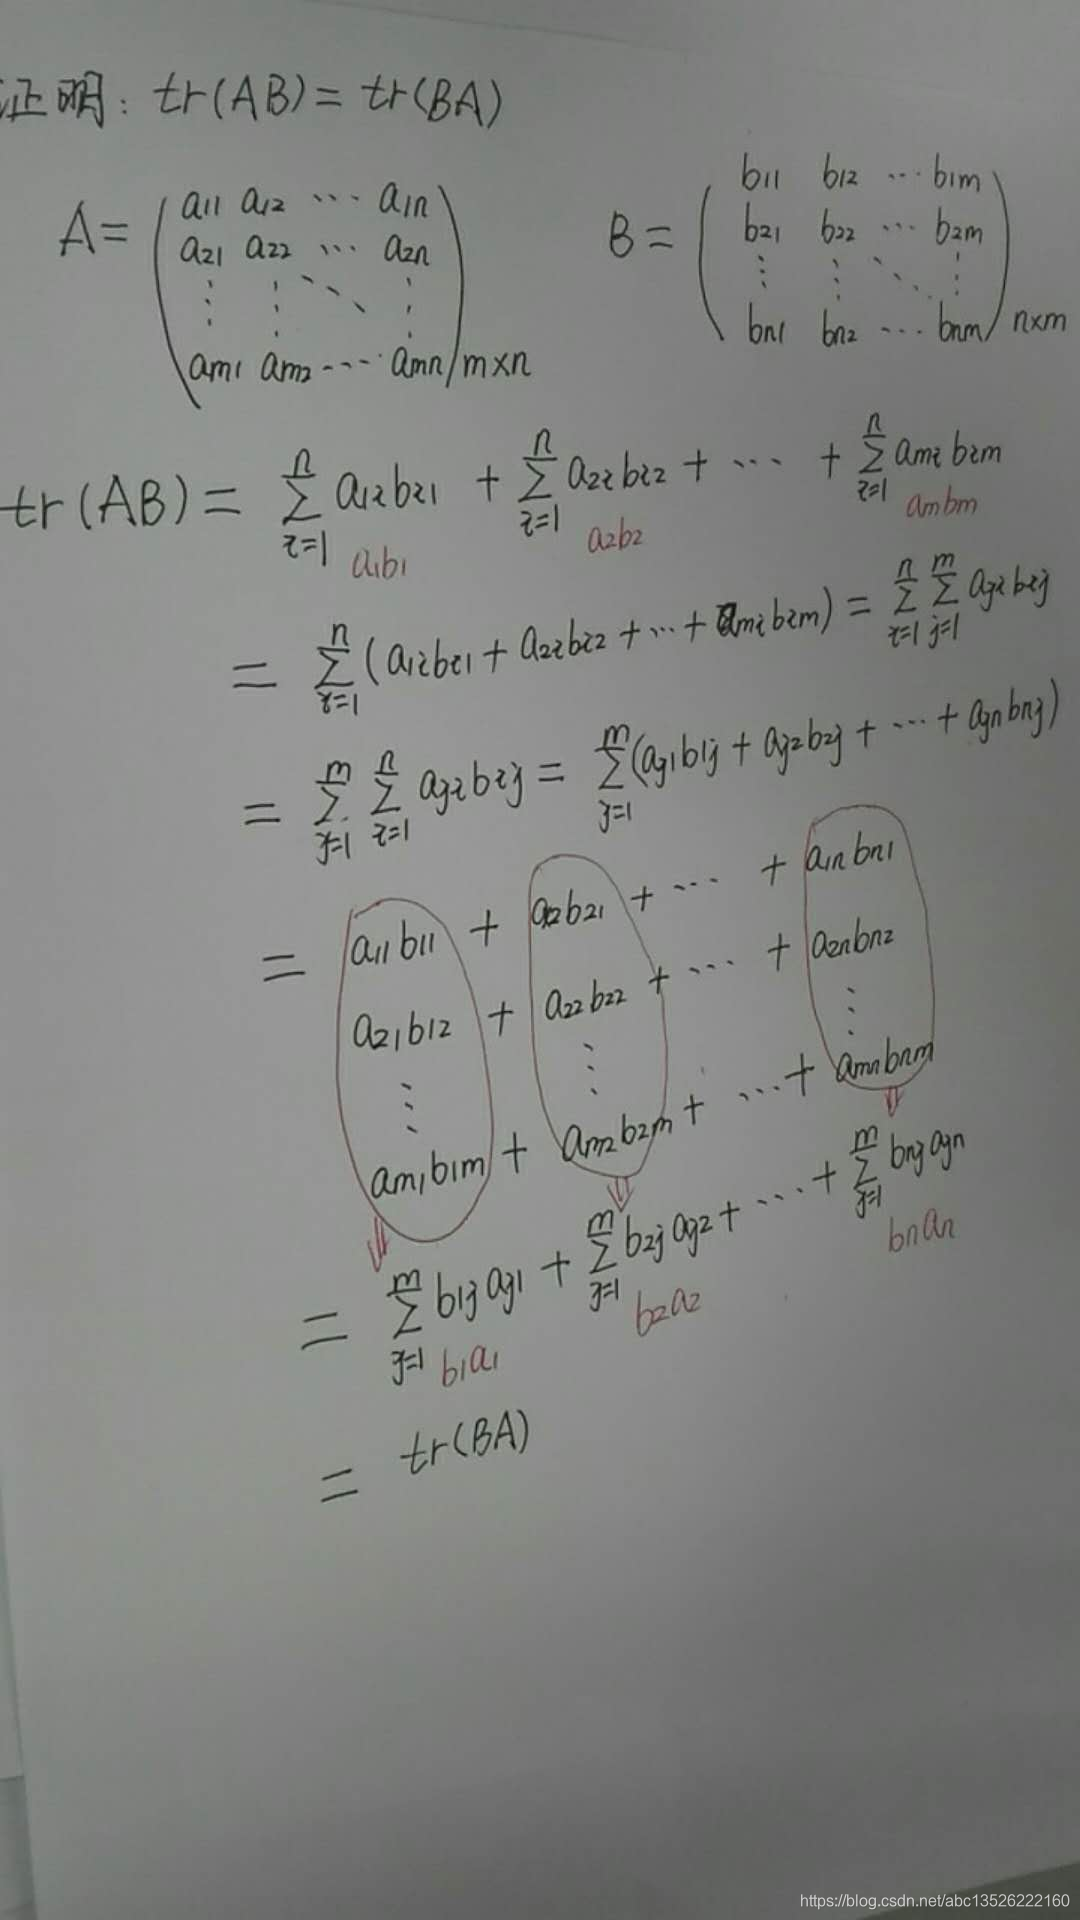 证明: tr(AB) = tr(BA)
A = ( a11 a12 ··· a1n B = ( b11 b12 ··· b1m
a21 a22 ··· a2n b21 b22 ··· b2m
⋮ ⋮ ⋱ ⋮ ⋮ ⋮ ⋱ ⋮
am1 am2 ··· amn ) m×n bn1 bn2 ··· bnm ) n×m
tr(AB) = ∑_{i=1}^{n} a1i bi1 + ∑_{i=1}^{n} a2i bi2 + ··· + ∑_{i=1}^{n} ami bim
a1b1 a2b2 ambm
= ∑_{i=1}^{n} (a1i bi1 + a2i bi2 + ··· + ami bim) = ∑_{i=1}^{n} ∑_{j=1}^{m} aji bij
= ∑_{j=1}^{m} ∑_{i=1}^{n} aji bij = ∑_{j=1}^{m} (aj1 b1j + aj2 b2j + ··· + ajn bnj)
= a11 b11 + a12 b21 + ··· + a1n bn1
a21 b12 + a22 b22 + ··· + a2n bn2
⋮ ⋮ ⋮
am1 b1m + am2 b2m + ··· + amn bnm
⇓ ⇓ ⇓
= ∑_{j=1}^{m} b1j aj1 + ∑_{j=1}^{m} b2j aj2 + ··· + ∑_{j=1}^{m} bnj ajn
b1a1 b2a2 bnan
= tr(BA)
https://blog.csdn.net/abc13526222160